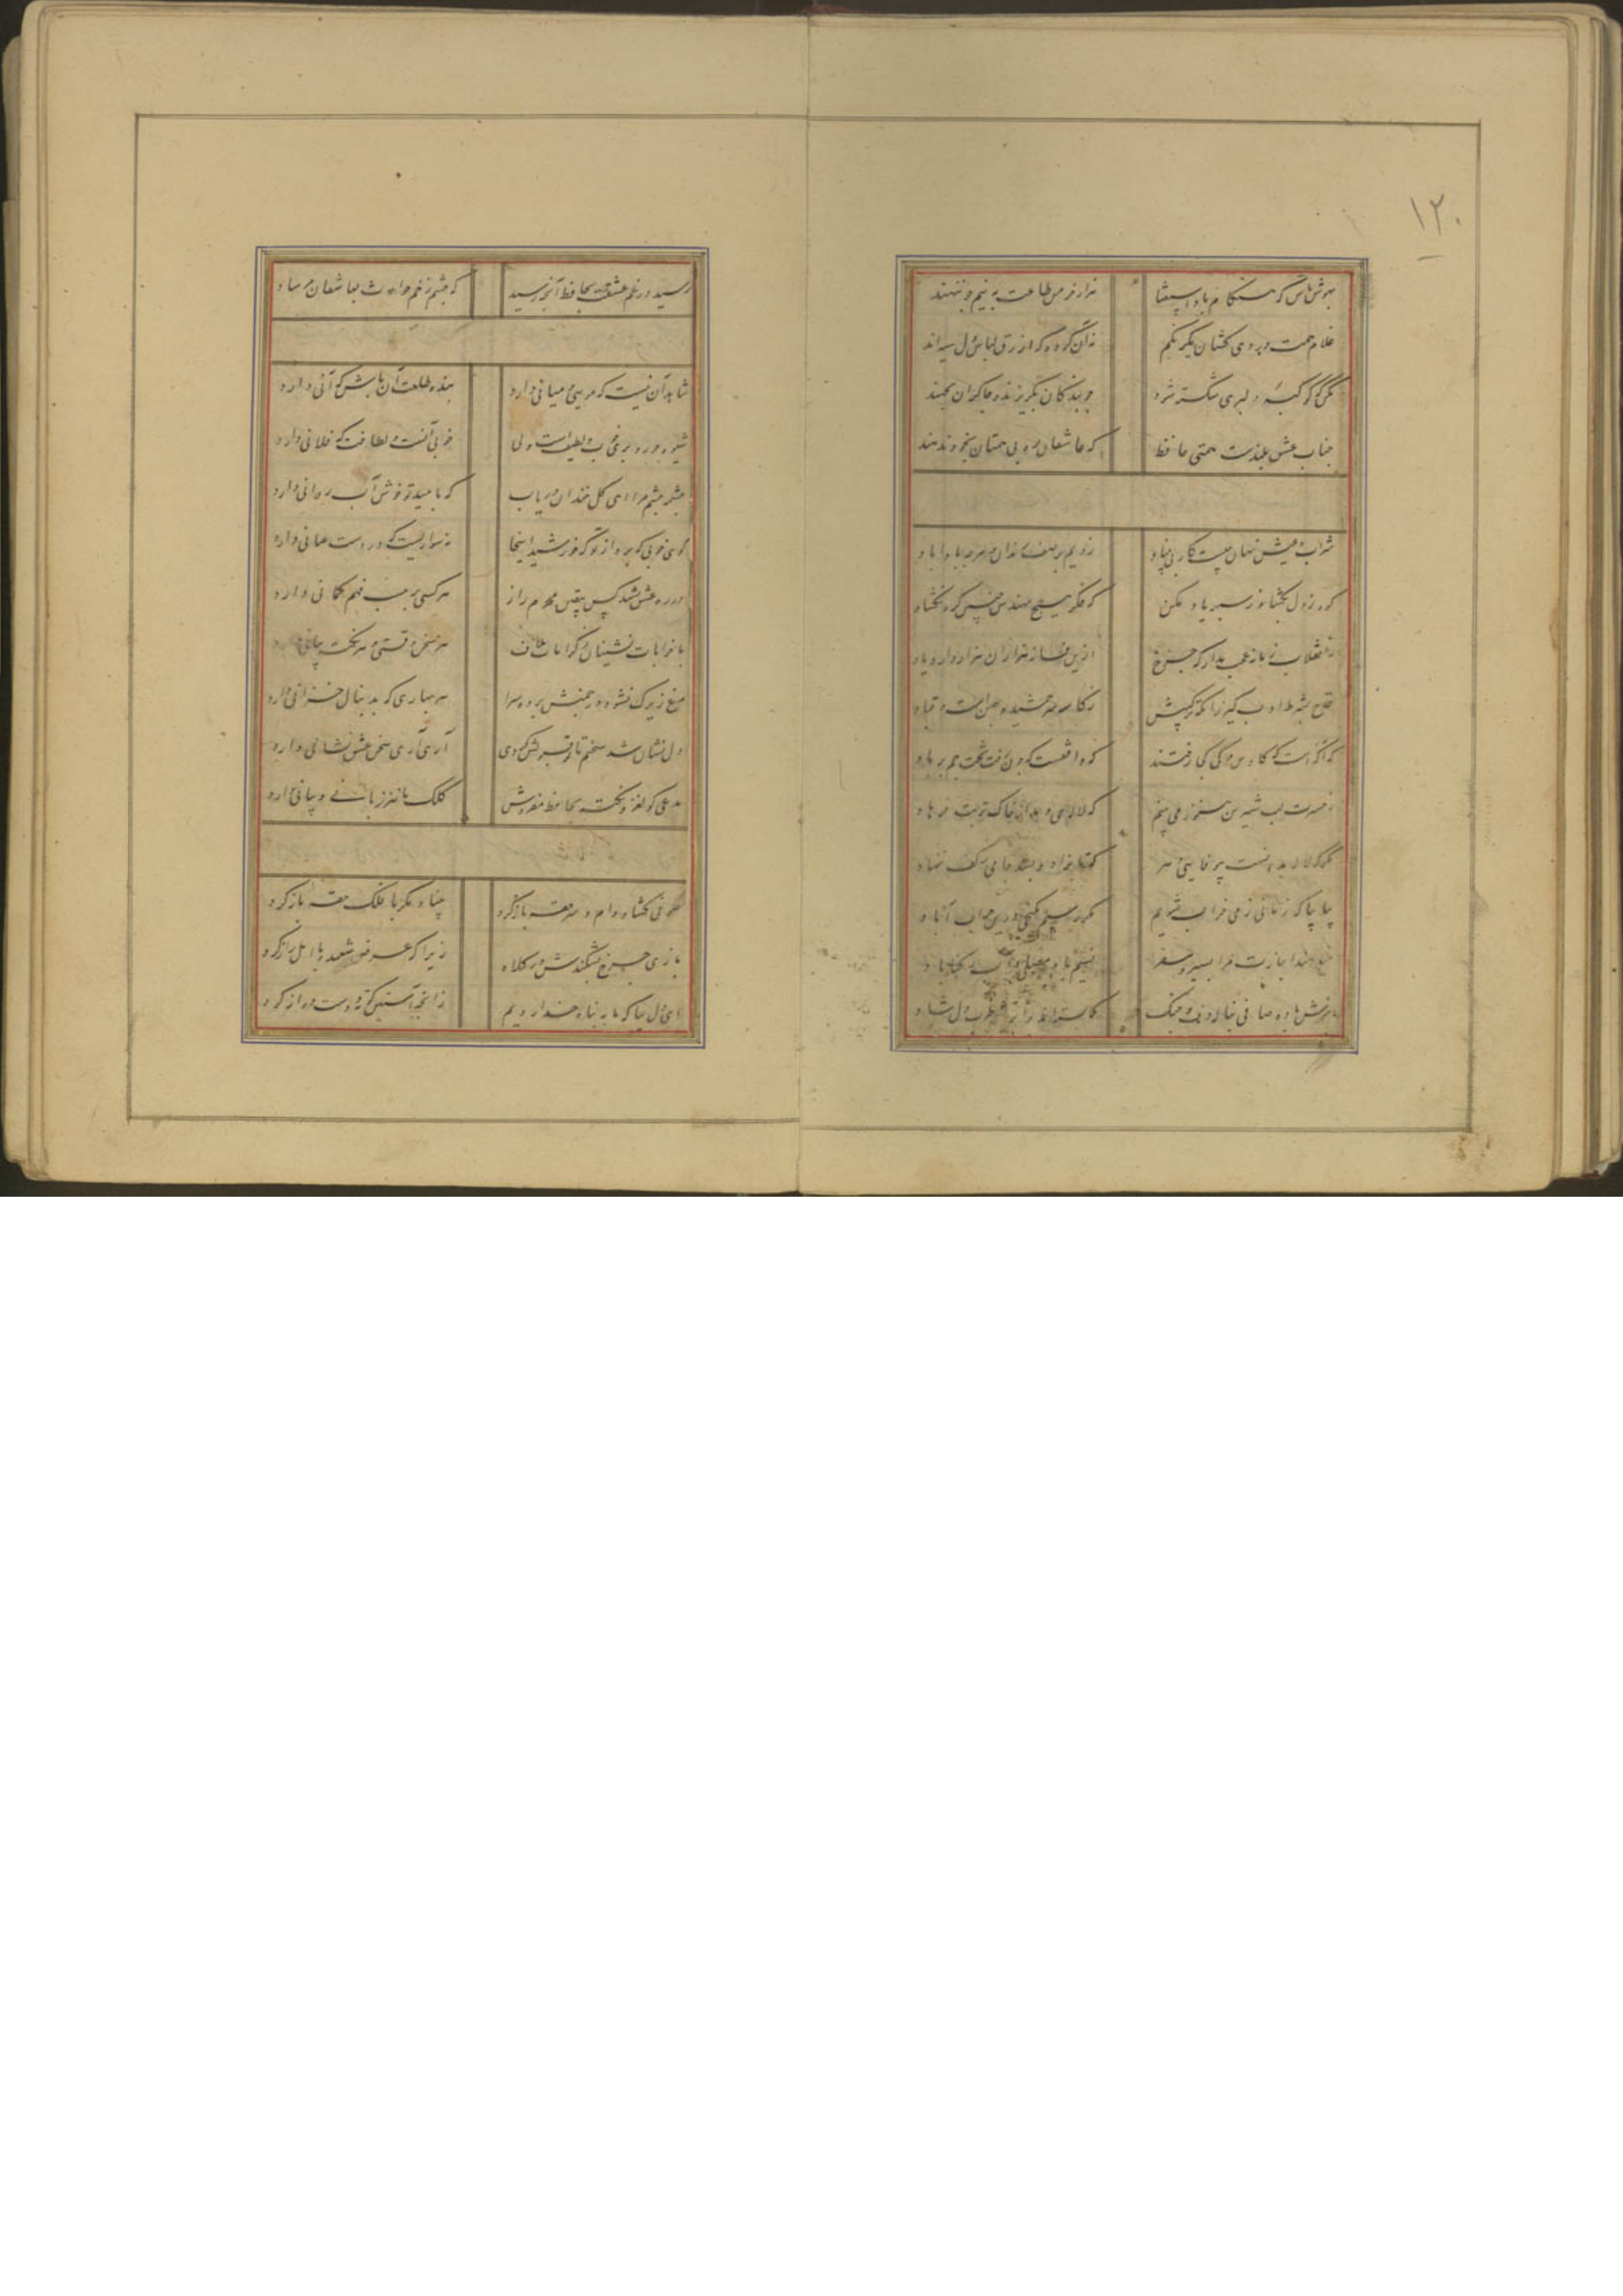 ۱۲۰
بهوش باش که هنگام باد استغنا هزار خرمن طاعت به نیم جو ننهند
غلام همت دردی کشان یکرنگم نه آن گروه که ازرق لباس و دل سیه اند
مکن که کوکبه دلبری شکسته شود چو بندگان بگریزند و چاکران بجهند
جناب عشق بلندست همتی حافظ که عاشقان ره بی همتان بخود ندهند
شراب و عیش نهان چیست کار بی بنیاد زدیم بر صف رندان هر چه بادا باد
گره ز دل بگشا وز سپهر یاد مکن که فکر هیچ مهندس چنین گره نگشاد
ز انقلاب زمانه عجب مدار که چرخ ازین فسانه هزاران هزار دارد یاد
قدح بشرط ادب گیر زانکه ترکیبش ز کاسه سر جمشید و بهمن است و قباد
که آگه است که کاوس و کی کجا رفتند که واقفست که چون رفت تخت جم بر باد
ز حسرت لب شیرین هنوز می بینم که لاله می دمد از خاک تربت فرهاد
مگر که لاله بدانست بیوفایی دهر که تا بزاد و بشد جامی ز کف ننهاد
بیا بیا که زمانی ز می خراب شویم مگر رسیم بگنجی درین خراب آباد
نمیدهند اجازت مرا بسیر و سفر نسیم باد مصلی و آب رکناباد
بنوش باده صافی بناله دف و چنگ که بسته اند بر ابریشم طرب دل شاد
رسید در غم عشقش بحافظ آنچه رسید که چشم زخم حوادث بعاشقان مرساد
شاهد آن نیست که مویی و میانی دارد بنده طلعت آن باش که آنی دارد
شیوه حور و پری خوب و لطیف است ولی خوبی آنست و لطافت که فلانی دارد
چشمه چشم مرا ای گل خندان دریاب که بامید تو خوش آب روانی دارد
گوی خوبی که برد از تو که خورشید اینجا نه سواریست که در دست عنانی دارد
در ره عشق نشد کس بیقین محرم راز هر کسی بر حسب فهم گمانی دارد
با خرابات نشینان ز کرامات ملاف هر سخن وقتی و هر نکته مکانی دارد
مرغ زیرک نشود در چمنش پرده سرا هر بهاری که بدنبال خزانی دارد
دل نشان شد سخنم تا تو قبولش کردی آری آری سخن عشق نشانی دارد
مدعی گو لغز و نکته بحافظ مفروش کلک ما نیز زبانی و بیانی دارد
صوفی گشاد دام و سر حقه باز کرد بنیاد مکر با فلک حقه باز کرد
بازی چرخ بشکندش در کلاه زیرا که عرض شعبده با اهل راز کرد
ای دل بیا که ما به پناه خدا رویم زانچه آستین کوته و دست دراز کرد